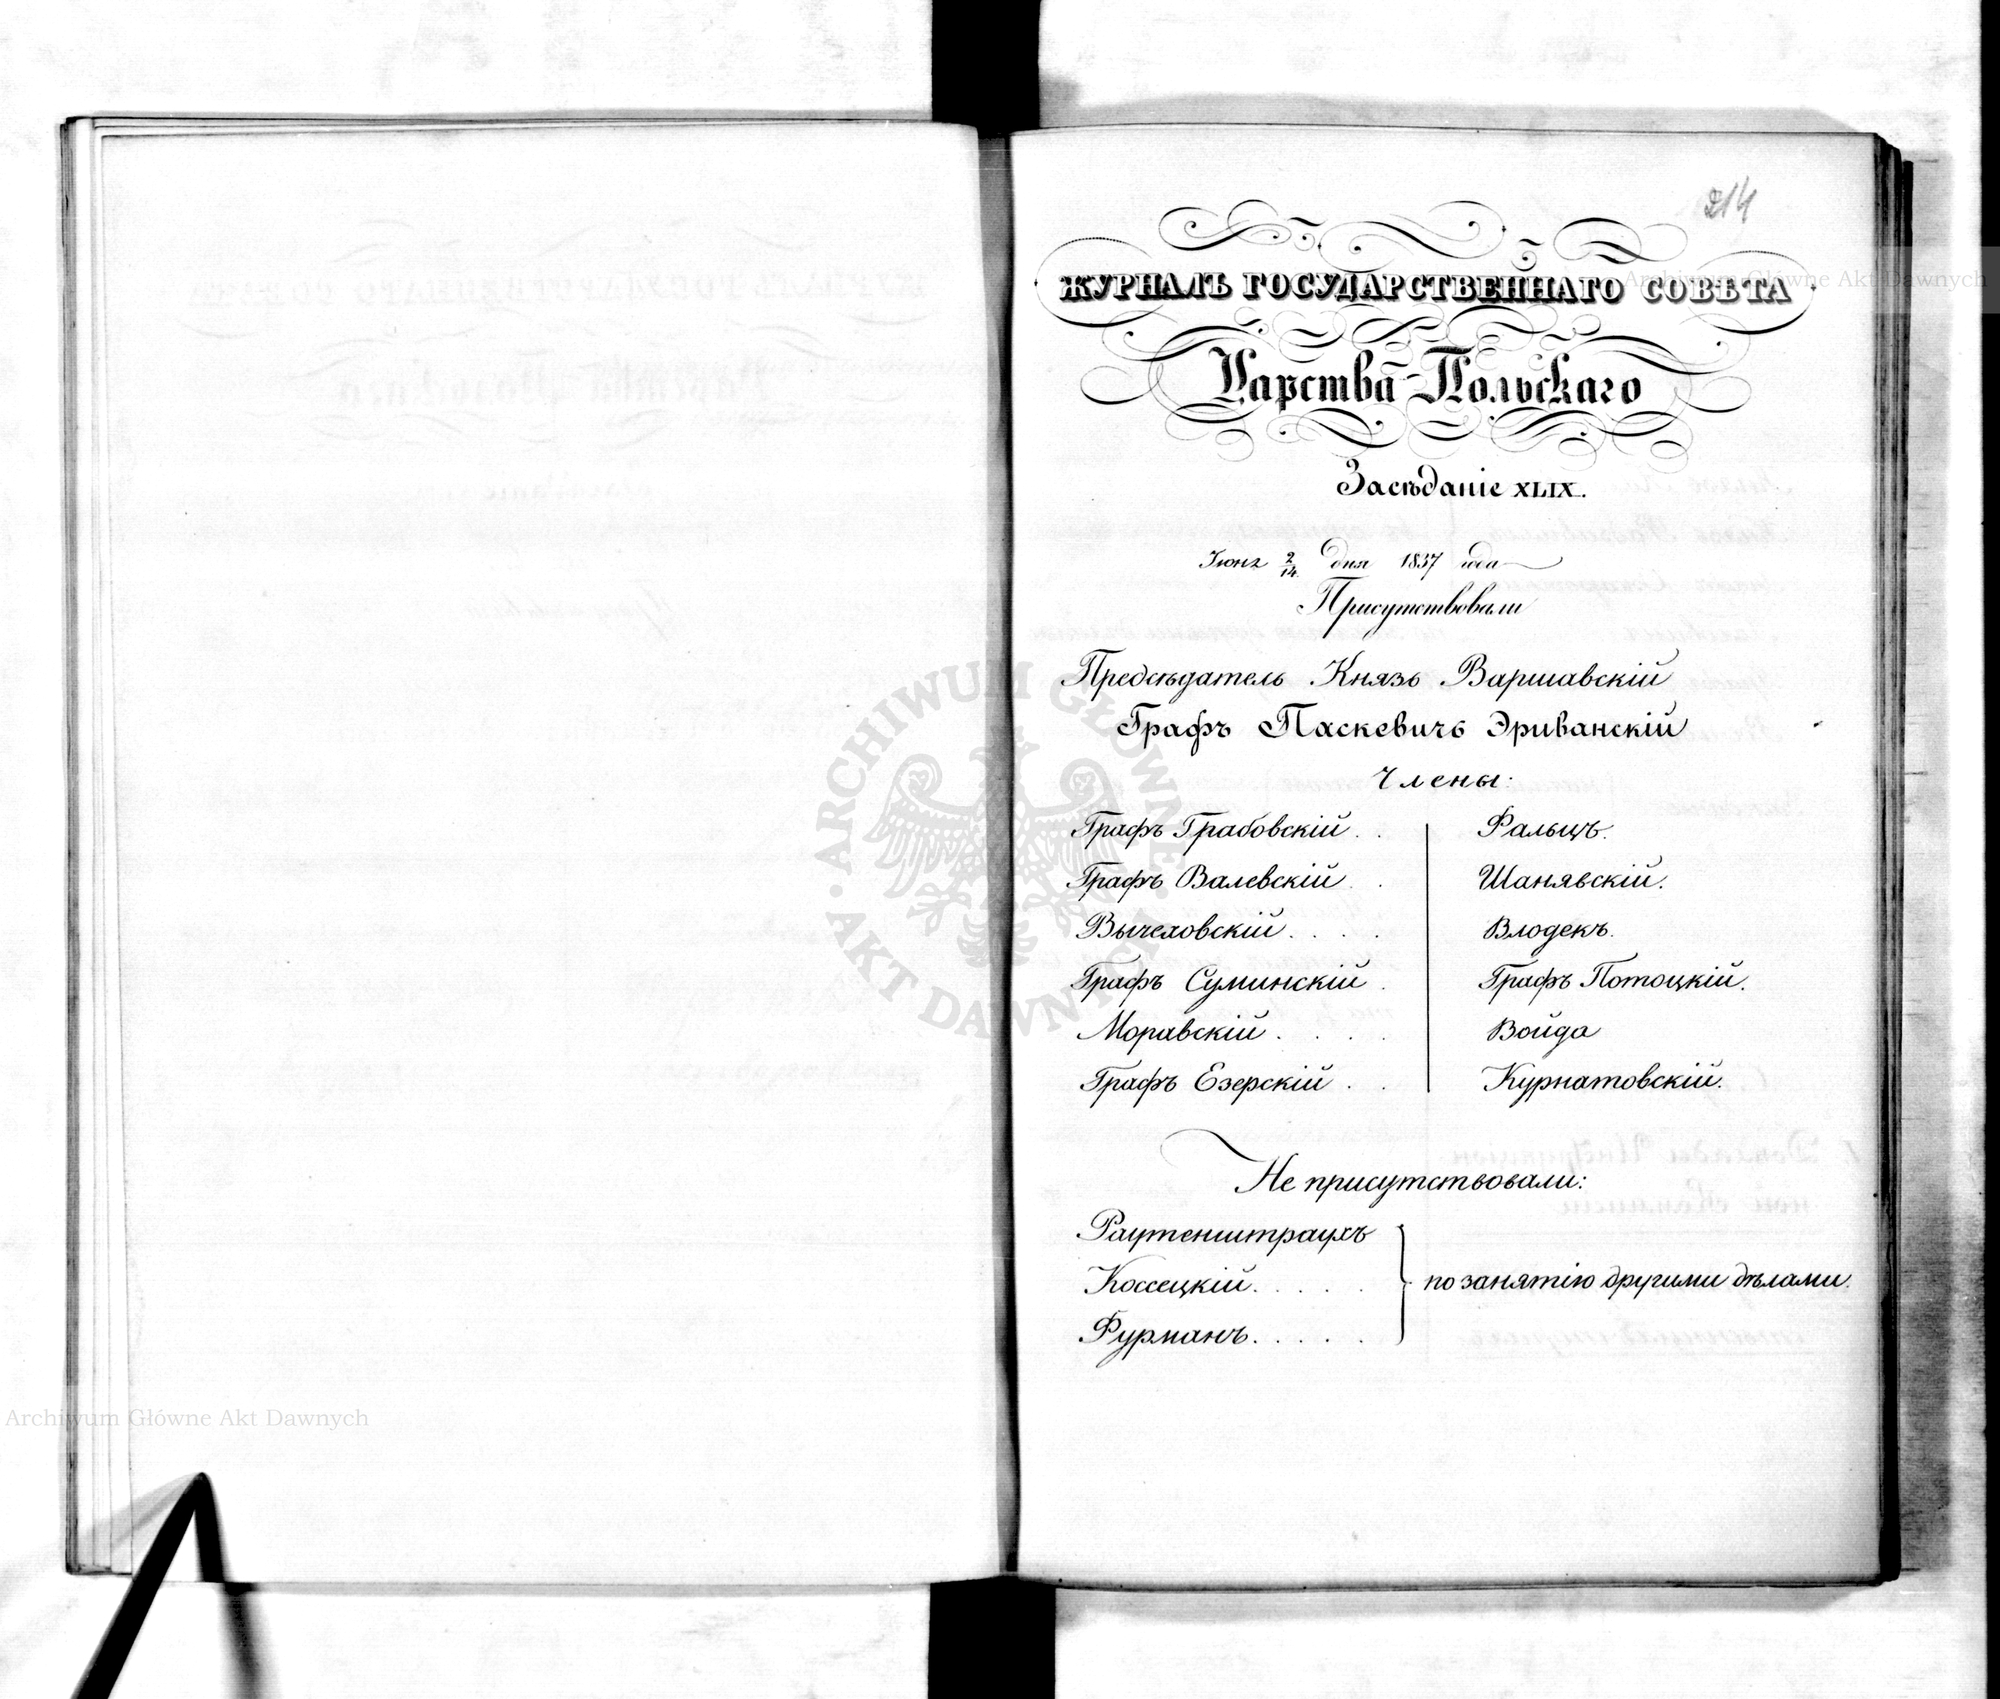 214
ЖУРНАЛЪ ГОСУДАРСТВЕННАГО СОВѢТА
Царства Польскаго
Засѣданіе XLIX.
Іюня 2/14 дня 1837 года
Присутствовали
Предсѣдатель Князь Варшавскій
Графъ Паскевичъ Эриванскій
Члены:
Графъ Грабовскій . . Фальцъ.
Графъ Валевскій . . Шанявскій.
Вычеховскій . . . . Влодекъ.
Графъ Суминскій . Графъ Потоцкій.
Моравскій . . . . Войда
Графъ Езерскій . . Курнатовскій.
Не присутствовали:
Раутенштраухъ
Коссецкій . . . . . по занятію другими дѣлами.
Фурманъ . . . . .
ARCHIWUM GŁÓWNE AKT DAWNYCH
Archiwum Główne Akt Dawnych
Archiwum Główne Akt Dawnych